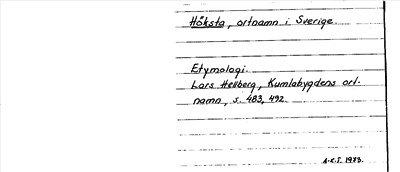 Höksta, ortnamn i Sverige.
Etymologi.
Lars Hellberg, Kumlabygdens ort-
namn, s. 483, 492.
A.K.T. 1973.